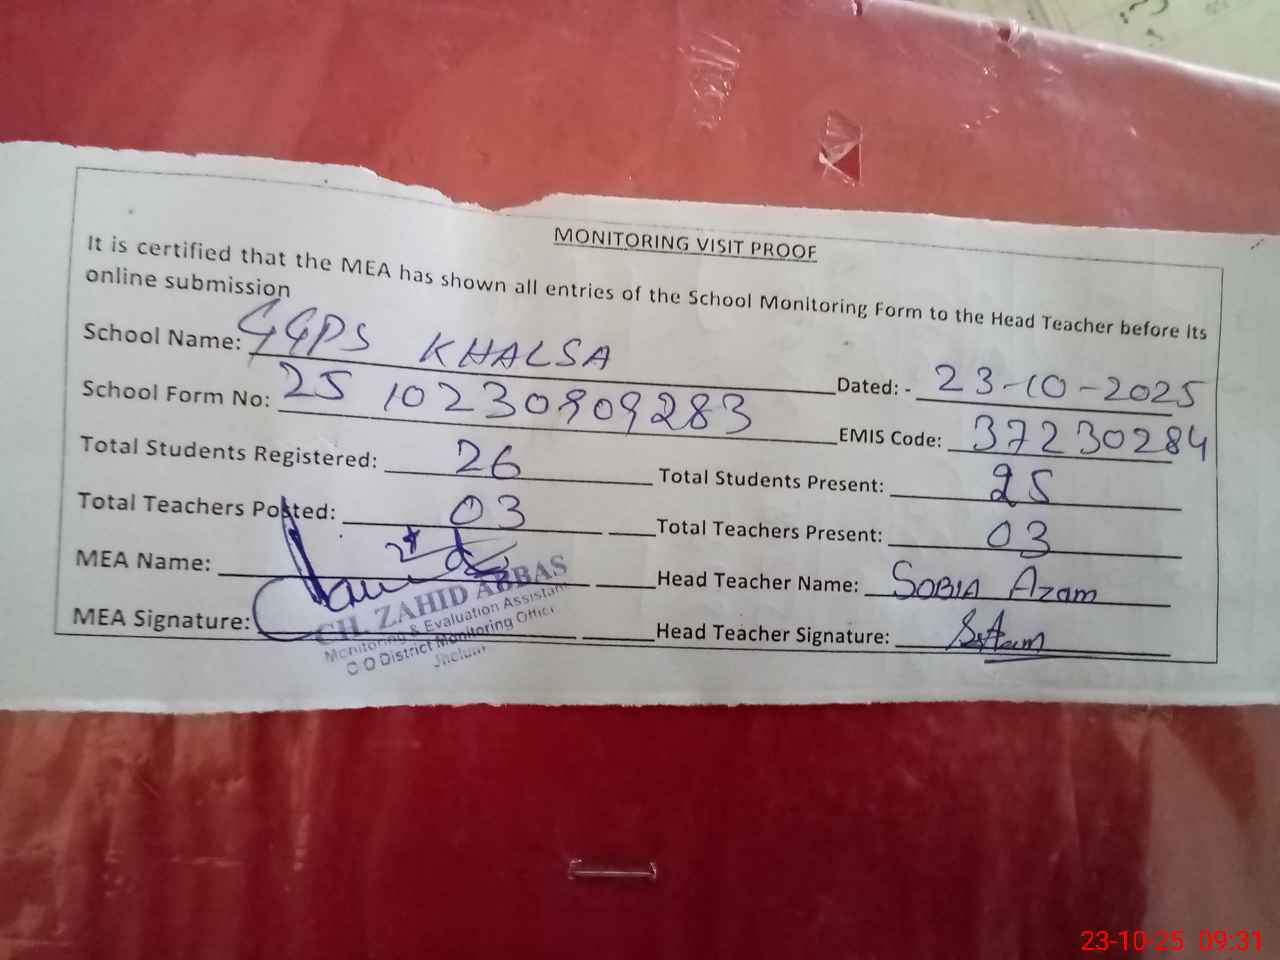 MONITORING VISIT PROOF
It is certified that the MEA has shown all entries of the School Monitoring Form to the Head Teacher before its
online submission
School Name: GGPS KHALSA Dated: - 23-10-2025
School Form No: 25 10230909283 EMIS Code: 37230284
Total Students Registered: 26 Total Students Present: 25
Total Teachers Posted: 03 Total Teachers Present: 03
MEA Name: Head Teacher Name: SOBIA Azam
MEA Signature: Head Teacher Signature: S.Azam
CH. ZAHID ABBAS
Monitoring & Evaluation Assistant
C O District Monitoring Officer
Jhelum
23-10-25 09:31